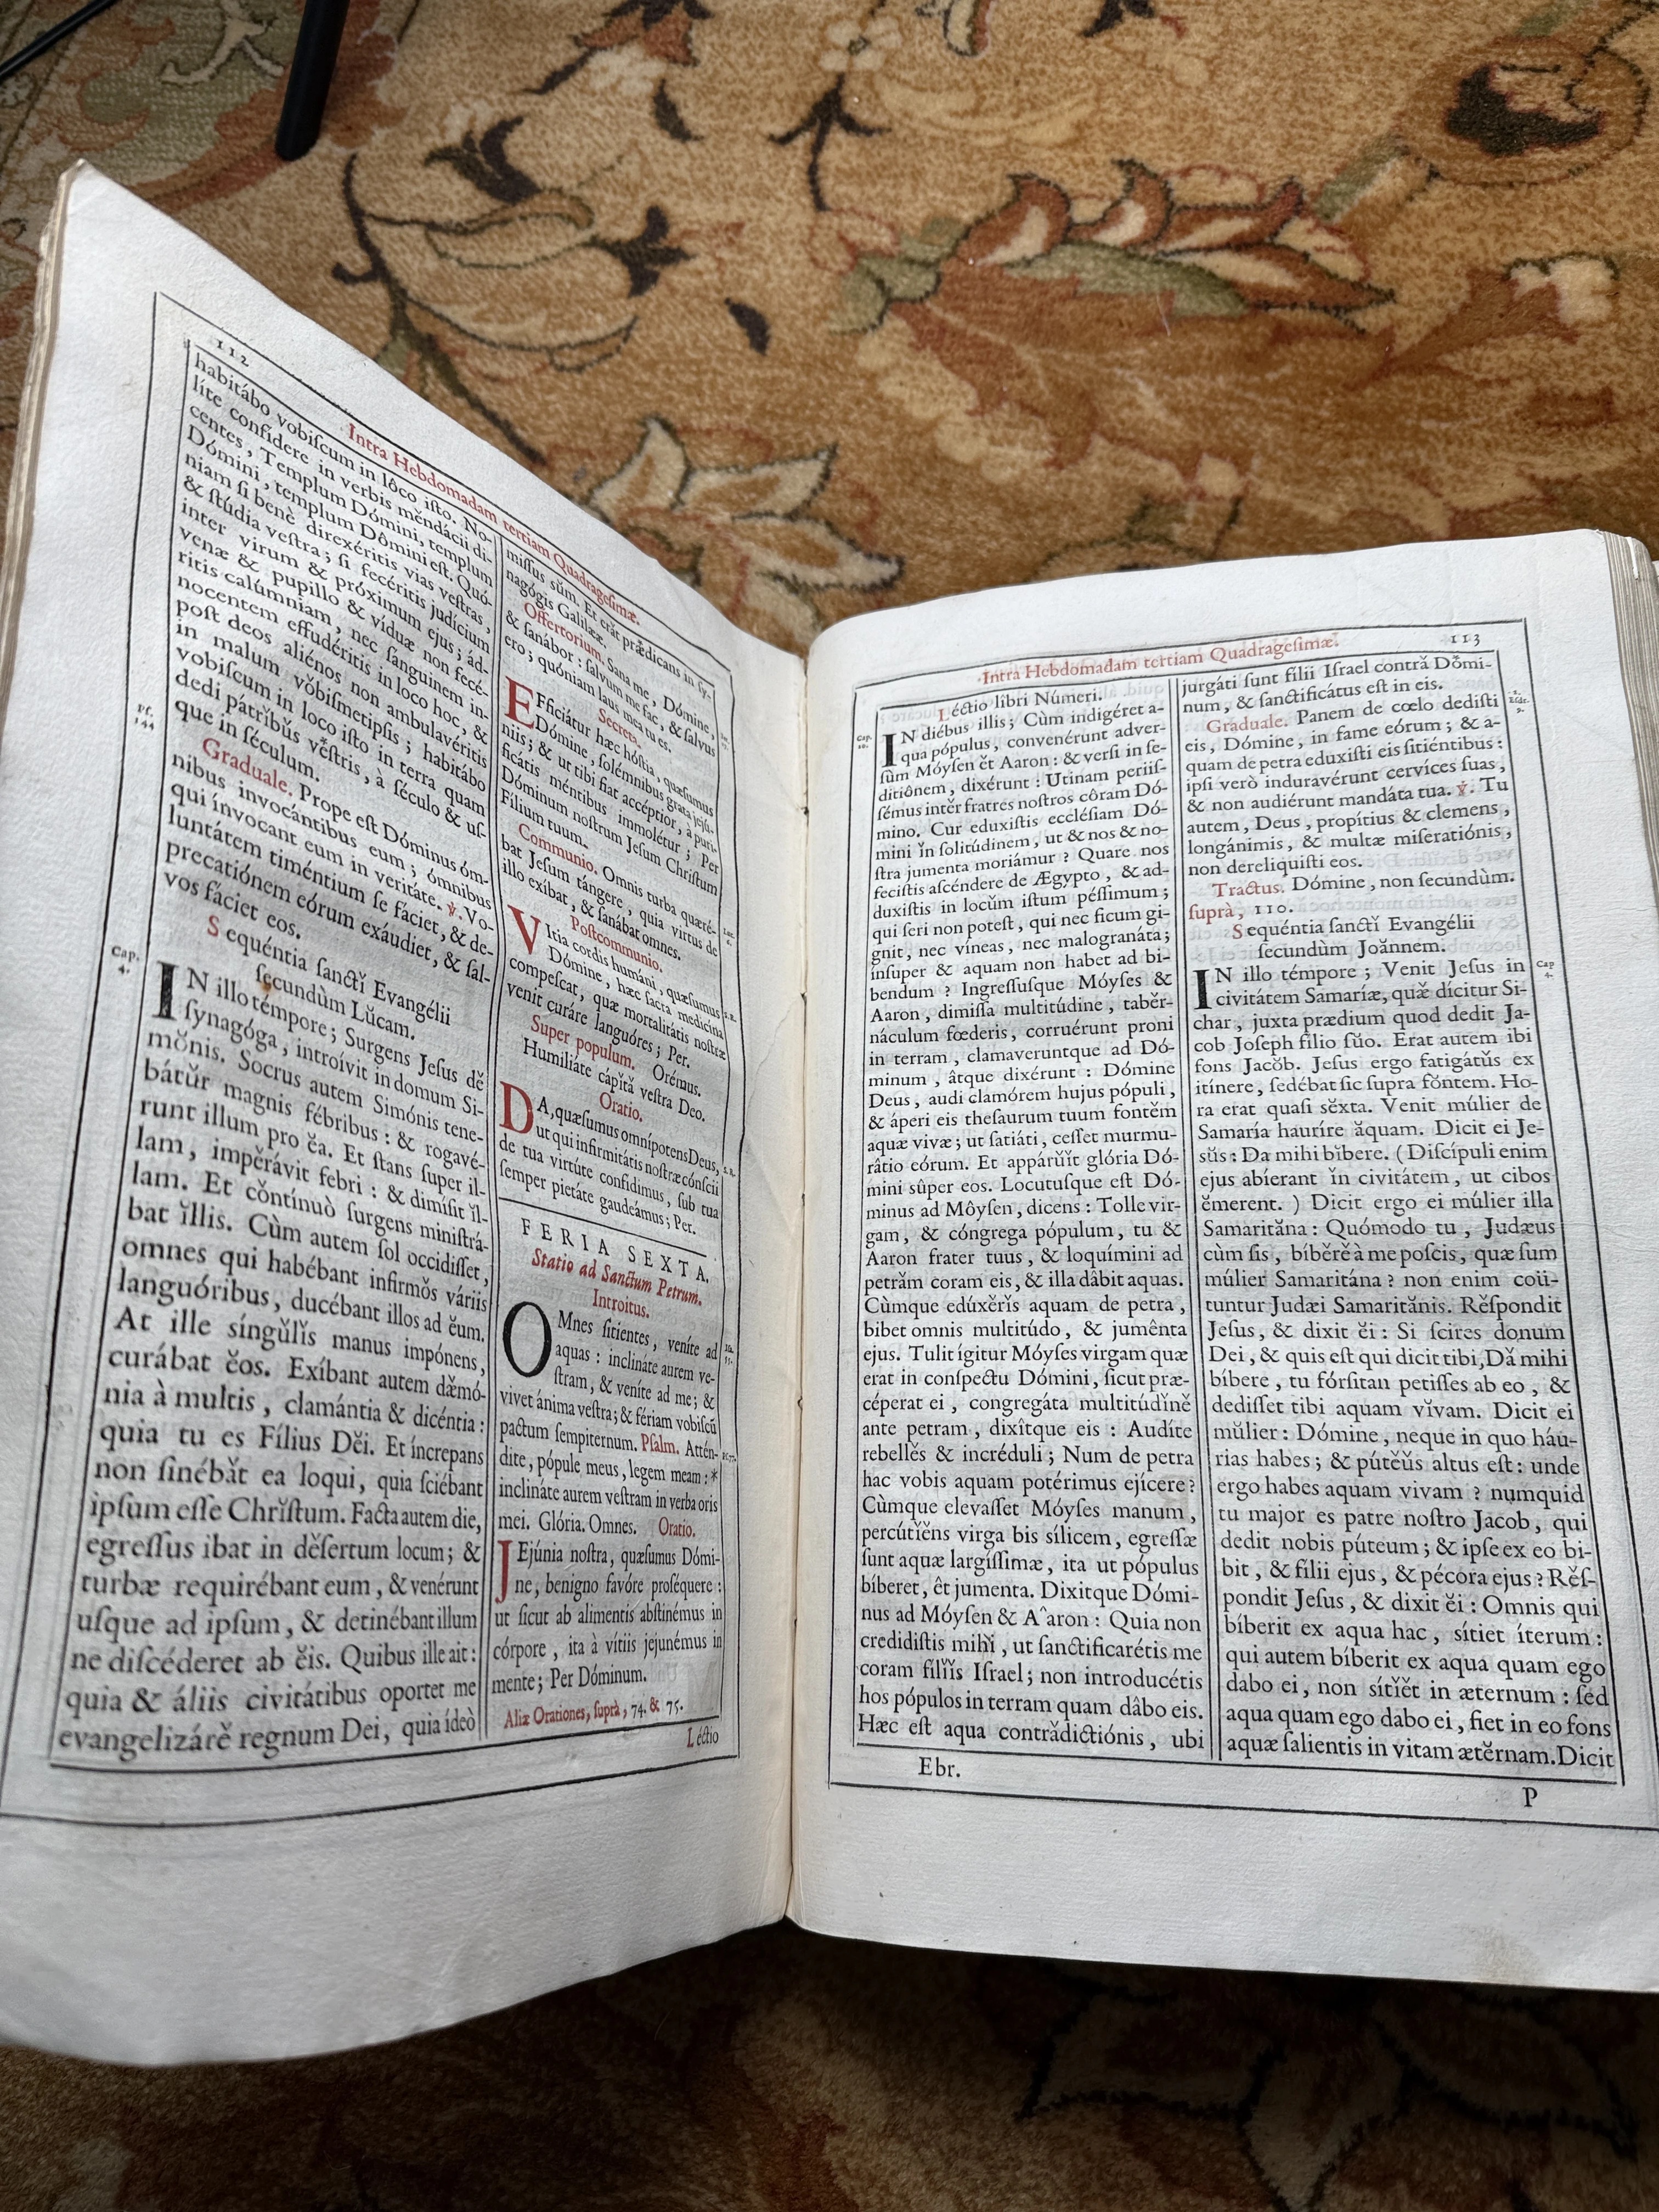 112
Intra Hebdomadam tertiam Quadragesimæ.
habitábo vobiſcum in lôco iſto. No-
líte confídere in verbis mĕndácii di-
centes, Templum Dómini, templum
Dómini, templum Dômini eſt. Quó-
niam ſi benè direxéritis vias veſtras,
& ſtúdia veſtra; ſi fecéritis judícium
inter virum & próximum ejus; ád-
venæ & pupillo & víduæ non fecé-
ritis calúmniam, nec ſanguinem in-
nocentem effudéritis in loco hoc, &
poſt deos aliénos non ambulavéritis
in malum vŏbiſmetipſis; habitábo
vobiſcum in loco iſto in terra quam
dedi pátrĭbŭs vĕſtris, à ſéculo & uſ-
que in ſéculum.
Graduale. Prope eſt Dóminus óm-
nibus invocántibus eum; ómnibus
qui ínvocant eum in veritáte. ℣. Vo-
luntátem timéntium ſe fáciet, & de-
precatiónem eórum exáudiet, & ſal-
vos fáciet eos.
Pſ.
144
Sequéntia ſanctĭ Evangélii
ſecundùm Lŭcam.
Cap.
4.
IN illo témpore; Surgens Jeſus dĕ
ſynagóga, introívit in domum Si-
mŏnis. Socrus autem Simónis tene-
bátŭr magnis fébribus: & rogavé-
runt illum pro ĕa. Et ſtans ſuper il-
lam, impĕrávit febri: & dimíſit ĭl-
lam. Et cŏntínuò ſurgens miniſtrá-
bat ĭllis. Cùm autem ſol occidiſſet,
omnes qui habébant infirmŏs váriis
languóribus, ducébant illos ad ĕum.
At ille síngŭlĭs manus impónens,
curábat ĕos. Exíbant autem dæ̆mó-
nia à multis, clamántia & dicéntia:
quia tu es Fílius Dĕi. Et íncrepans
non ſinébăt ea loqui, quia ſciébant
ipſum eſſe Chrĭſtum. Facta autem die,
egreſſus ibat in dĕſertum locum; &
turbæ requirébant eum, & venérunt
uſque ad ipſum, & detinébant illum
ne diſcéderet ab ĕis. Quibus ille ait:
quia & áliis civitátibus oportet me
evangelizárĕ regnum Dei, quia ídeò
miſſus sŭm. Et erăt præ̆dicans in ſy-
nagógis Galilææ.
Offertorium. Sana me, Dómine,
& ſanábor: ſalvum me fac, & ſalvus
ero; quóniam laus mea tu es.
Secreta.
EFficiátur hæc hóſtia, quæſumus
Dómine, ſolémnibus grata jejú-
niis; & ut tibi fiat accéptior, à puri-
ficátis méntibus immolétur; Per
Dóminum noſtrum Jeſum Chriſtum
Fílium tuum.
Communio. Omnis turba quæré-
bat Jeſum tángere, quia virtus de
illo exíbat, & ſanábat omnes.
Poſtcommunio.
VItia cordis humáni, quæſumus
Dómine, hæc ſacta medicina
compeſcat, quæ mortalitátis noſtræ
venit curáre languóres; Per.
Super populum. Orémus.
Humiliáte cápĭtă veſtra Deo.
Oratio.
DA, quæſumus omnípotens Deus,
ut qui infirmitátis noſtræ cónſcii
de tua virtúte confídimus, ſub tua
ſemper pietáte gaudeámus; Per.
FERIA SEXTA.
Statio ad Sanctum Petrum.
Introitus.
OMnes ſitientes, veníte ad
aquas: inclináte aurem ve-
ſtram, & veníte ad me; &
vivet ánima veſtra; & fériam vobiſcũ
pactum ſempiternum. Pſalm. Attén-
dite, pópule meus, legem meam: *
inclináte aurem veſtram in verba oris
mei. Glória. Omnes. Oratio.
JEjúnia noſtra, quæſumus Dómi-
ne, benigno favóre proſéquere:
ut ſicut ab alimentis abſtinémus in
córpore, ita à vítiis jejunémus in
mente; Per Dóminum.
Aliæ Orationes, ſuprà, 74. & 75.
Léctio
Intra Hebdomadam tertiam Quadrageſimæ.
113
Léctio libri Númeri.
Cap.
20.
IN diébus illis; Cùm indigéret a-
qua pópulus, convenérunt adver-
ſùm Móyſen ĕt Aaron: & verſi in ſe-
ditiônem, dixérunt: Utinam periiſ-
ſémus intĕr fratres noſtros côram Dó-
mino. Cur eduxiſtis eccléſiam Dó-
mini ĭn ſolitúdinem, ut & nos & no-
ſtra jumenta moriámur? Quare nos
feciſtis aſcéndere de Ægypto, & ad-
duxiſtis in locŭm iſtum péſſimum;
qui ſeri non poteſt, qui nec ficum gi-
gnit, nec víneas, nec malogranáta;
ínſuper & aquam non habet ad bi-
bendum? Ingreſſuſque Móyſes &
Aaron, dimiſſa multitúdine, tabĕr-
náculum fœderis, corruérunt proni
in terram, clamaveruntque ad Dó-
minum, âtque dixérunt: Dómine
Deus, audi clamórem hujus pópuli,
& áperi eis theſaurum tuum fontĕm
aquæ vivæ; ut ſatiáti, ceſſet murmu-
râtio eórum. Et appárŭĭt glória Dó-
mini sûper eos. Locutuſque eſt Dó-
minus ad Môyſen, dicens: Tolle vir-
gam, & cóngrega pópulum, tu &
Aaron frater tuus, & loquímini ad
petrăm coram eis, & illa dâbit aquas.
Cùmque edúxĕrĭs aquam de petra,
bibet omnis multitúdo, & jumênta
ejus. Tulit ígitur Móyſes virgam quæ
erat in conſpectu Dómini, ſicut præ-
céperat ei, congregáta multitúdĭnĕ
ante petram, dixîtque eis: Audíte
rebellĕs & incréduli; Num de petra
hac vobis aquam potérimus ejícere?
Cùmque elevaſſet Móyſes manum,
percútĭĕns virga bis sílicem, egreſſæ
ſunt aquæ largíſſimæ, ita ut pópulus
bíberet, êt jumenta. Dixitque Dómi-
nus ad Móyſen & A^aron: Quia non
credidiſtis mihĭ, ut ſanctificarétis me
coram fílĭĭs Iſrael; non introducétis
hos pópulos in terram quam dâbo eis.
Hæc eſt aqua contrădictiónis, ubi
jurgáti ſunt filii Iſrael contră Dŏmi-
num, & ſanctificátus eſt in eis.
Graduale. Panem de cœlo dediſti
eis, Dómine, in fame eórum; & a-
quam de petra eduxiſti eis ſitiéntibus:
ipſi verò induravérunt cervíces ſuas,
& non audiérunt mandáta tua. ℣. Tu
autem, Deus, propítius & clemens,
longánimis, & multæ miſeratiónis,
non dereliquiſti eos.
Tractus. Dómine, non ſecundùm.
ſuprà, 110.
Sequéntia ſanctĭ Evangélii
ſecundùm Joănnem.
Cap
4.
IN illo témpore; Venit Jeſus in
civitátem Samaríæ, quæ̆ dícitur Si-
char, juxta prædium quod dedit Ja-
cob Joſeph fílio ſŭo. Erat autem ibi
fons Jacŏb. Jeſus ergo fatigátŭs ex
itínere, ſedébat ſic ſupra fŏntem. Ho-
ra erat quaſi sĕxta. Venit múlier de
Samaría hauríre ăquam. Dicit ei Je-
sŭs: Da mihi bĭbere. (Diſcípuli enim
ejus abíerant ĭn civitátem, ut cibos
ĕmerent.) Dicit ergo ei múlier illa
Samarităna: Quómodo tu, Judæus
cùm ſis, bíbĕrĕ à me poſcis, quæ ſum
múlier Samaritána? non enim coü-
tuntur Judæi Samaritănis. Rĕſpondit
Jeſus, & dixit ĕi: Si ſcires donum
Dei, & quis eſt qui dicit tibi, Dă mihi
bíbere, tu fórſitan petiſſes ab eo, &
dediſſet tibi aquam vĭvam. Dicit ei
mŭlier: Dómine, neque in quo háu-
rias habes; & pútĕŭs altus eſt: unde
ergo habes aquam vivam? numquid
tu major es patre noſtro Jacob, qui
dedit nobis púteum; & ipſe ex eo bi-
bit, & fílii ejus, & pécora ejus? Rĕſ-
pondit Jeſus, & dixit ĕi: Omnis qui
bíberit ex aqua hac, sítiet íterum:
qui autem bíberit ex aqua quam ego
dabo ei, non sítĭĕt in æternum: ſed
aqua quam ego dabo ei, fiet in eo fons
aquæ ſalientis in vitam ætĕrnam. Dicit
Ebr.
P